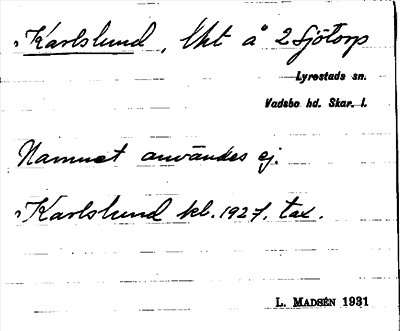 Karlslund, Lht å 2 Sjötorp
Lyrestads sn.
Vadsbo hd. Skar. l.
Namnet användes ej.
Karlslund kl. 1927. tax.
L. MADSÉN 1931